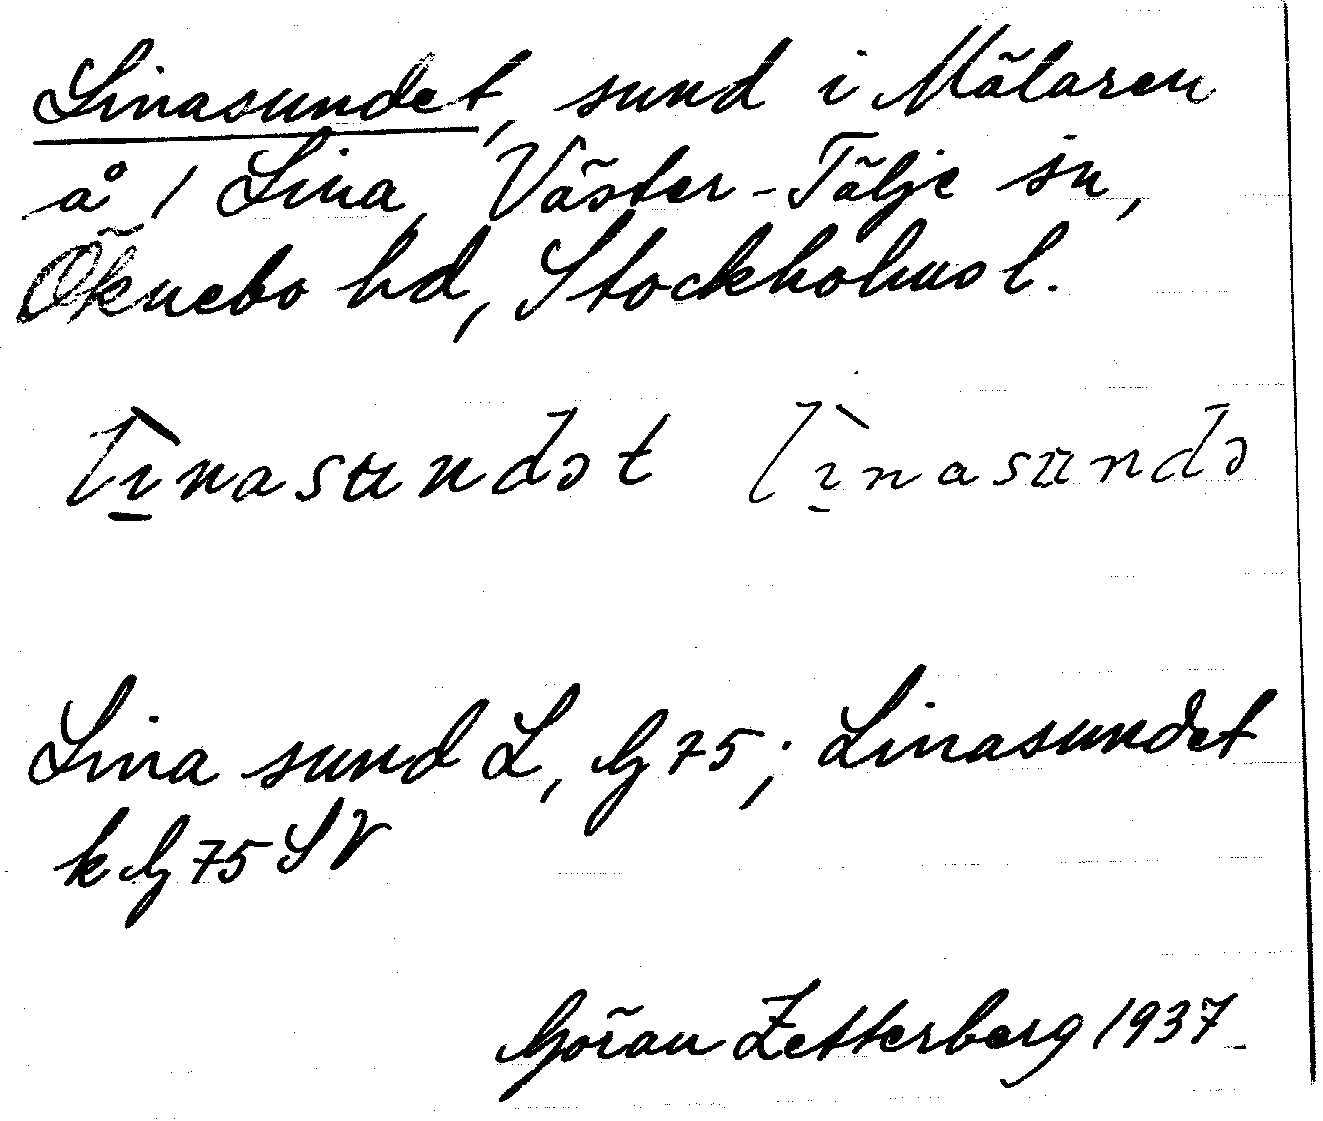 Linasundet, sund i Mälaren
å 1 Lina, Väster-Tälje sn,
Öknebo hd, Stockholms l.
lìnasundət lìnasundə
Lina sund L, G 75; Linasundet
k G 75 SV
Göran Zetterberg 1937